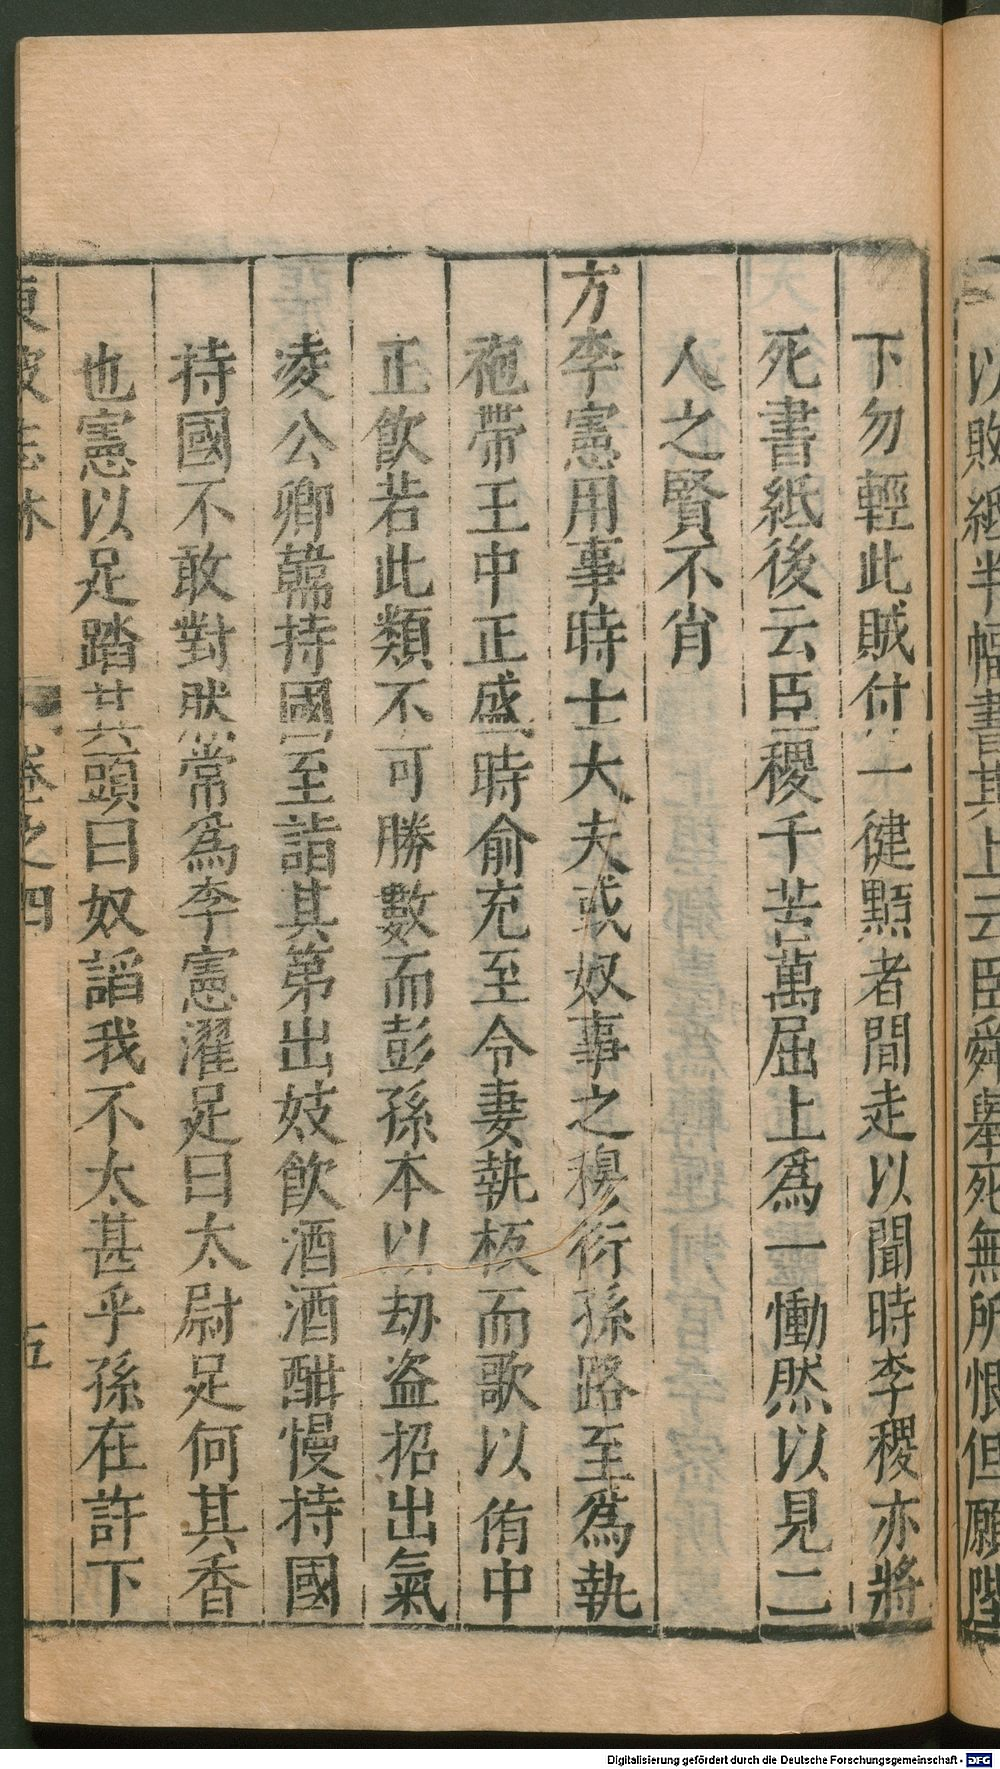 以敗紙半幅書其上云臣舜舉死無所恨但願陛
下勿輕此賊付一健黠者間走以聞時李稷亦將
死書紙後云臣稷千苦萬屈上為一慟然以見二
人之賢不肖
方李憲用事時士大夫或奴事之穆衍孫路至為執
袍帶王中正盛時俞充至令妻執板而歌以侑中
正飲若此類不可勝數而彭孫本以劫盜招出氣
凌公卿韓持國至詣其第出妓飲酒酒酣慢持國
持國不敢對然常為李憲濯足曰太尉足何其香
也憲以足踏其頭曰奴謟我不太甚乎孫在許下
東坡志林 卷之四 五
Digitalisierung gefördert durch die Deutsche Forschungsgemeinschaft - DFG